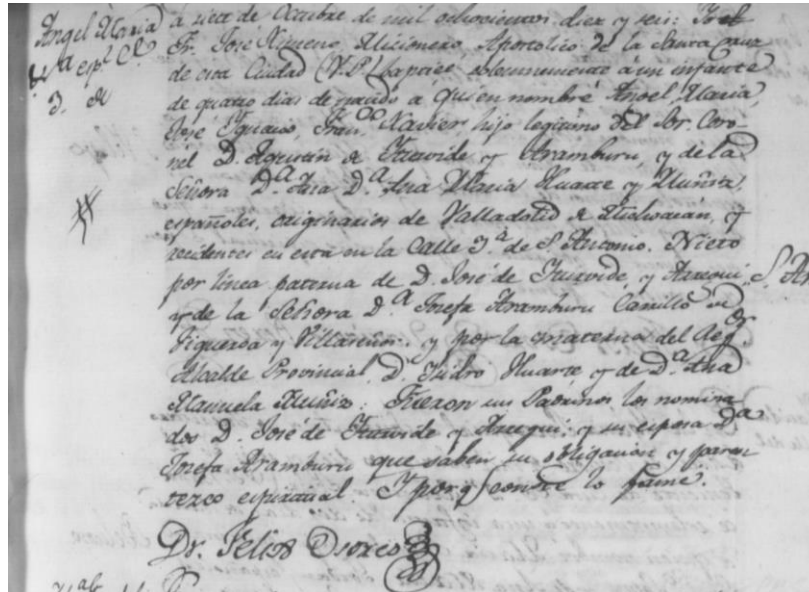 Angel Maria
espl
3. de
á siete de Octubre de mil ochocientos diez y seis: Yo el
Fr. José Ximeno, Micionero Apostolico de la Santa Cruz
de esta Ciudad (V.P.) baptice solemnemente á un infante
de quatro dias de nacido a quien nombré Angel, Maria,
José Ignacio, Franco Xavier hijo legitimo del Sr. Coro-
nel D. Agustin de Iturvide y Aramburu, y de la
Señora Da. Ana Da. Ana Maria Huarte y Muñiz,
españoles, originarios de Valladolid de Michoacán, y
recidentes en esta en la Calle 3a. de S. Antonio. Nieto
por linea paterna de D. José de Iturvide, y Arregui
y de la Señora Da. Josefa Aramburu Carrillo de
Figueroa y Villaseñor: y por la materna del
Alcalde Provincial D. Isidro Huarte y de Da. Ana
Manuela Muñiz: Fueron sus Padrinos los nomina
dos D. José de Iturvide y Arregui y su esposa Da.
Josefa Aramburu que saben su obligacion y paren
tezco espiritual. Y porq. conste lo firmé.
Dr. Felix Osores